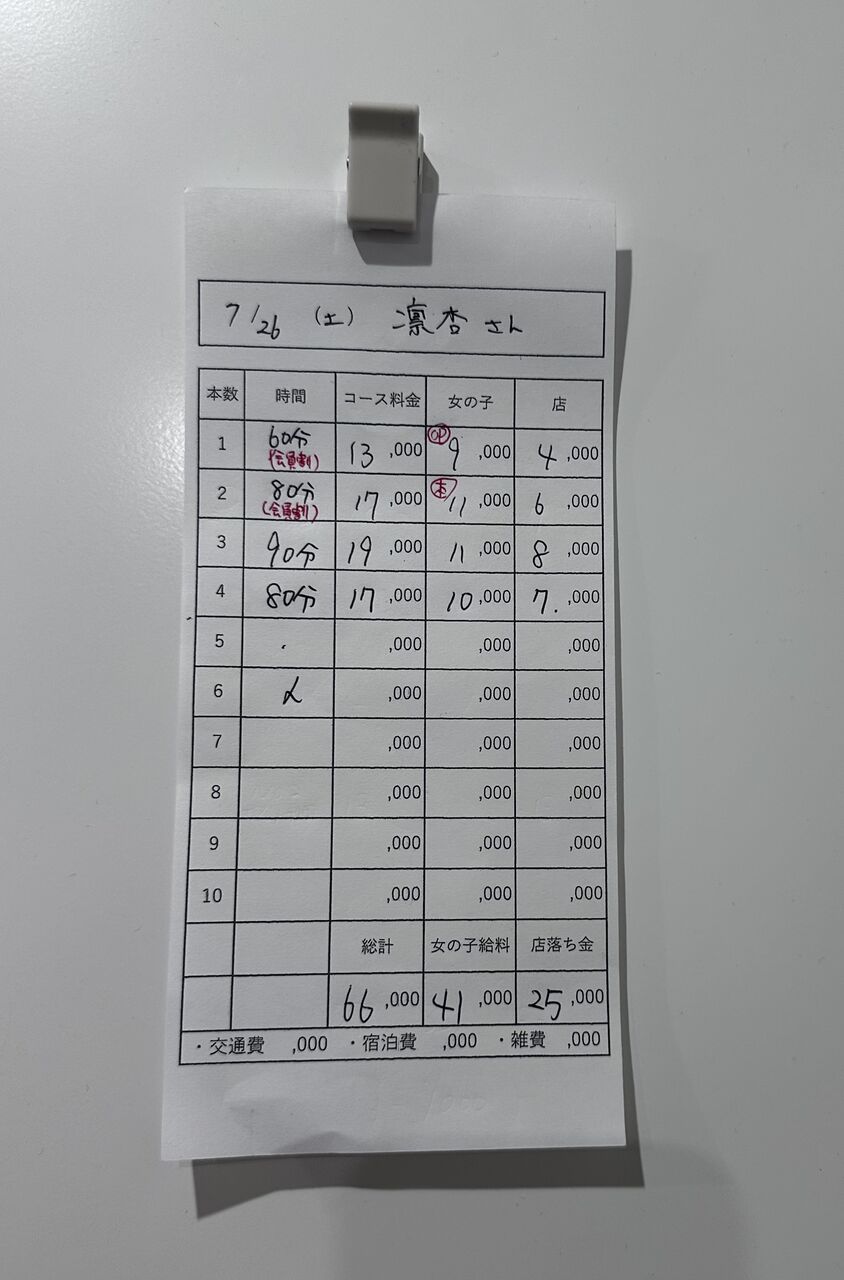 7/26 (土) 凛杏さん
本数 時間 コース料金 女の子 店
1 60分 (会員割) 13,000 OP 9,000 4,000
2 80分 (会員割) 17,000 本 11,000 6,000
3 90分 19,000 11,000 8,000
4 80分 17,000 10,000 7.,000
5 ,000 ,000 ,000
6 ,000 ,000 ,000
7 ,000 ,000 ,000
8 ,000 ,000 ,000
9 ,000 ,000 ,000
10 ,000 ,000 ,000
総計 女の子給料 店落ち金
66,000 41,000 25,000
・交通費 ,000 ・宿泊費 ,000 ・雑費 ,000